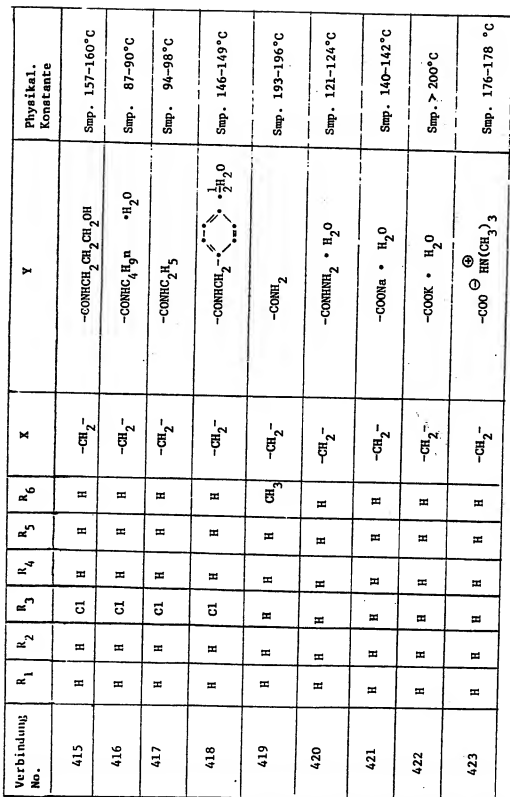 Verbindung No. | R1 | R2 | R3 | R4 | R5 | R6 | X | Y | Physikal. Konstante
415 | H | H | Cl | H | H | H | -CH2- | -CONHCH2CH2CH2OH | Smp. 157-160°C
416 | H | H | Cl | H | H | H | -CH2- | -CONHC4H9n •H2O | Smp. 87-90°C
417 | H | H | Cl | H | H | H | -CH2- | -CONHC2H5 | Smp. 94-98°C
418 | H | H | Cl | H | H | H | -CH2- | -CONHCH2- •1/2H2O | Smp. 146-149°C
419 | H | H | H | H | H | CH3 | -CH2- | -CONH2 | Smp. 193-196°C
420 | H | H | H | H | H | H | -CH2- | -CONHNH2 • H2O | Smp. 121-124°C
421 | H | H | H | H | H | H | -CH2- | -COONa • H2O | Smp. 140-142°C
422 | H | H | H | H | H | H | -CH2- | -COOK • H2O | Smp. > 200°C
423 | H | H | H | H | H | H | -CH2- | -COO ⊖ ⊕ HN(CH3)3 | Smp. 176-178 °C